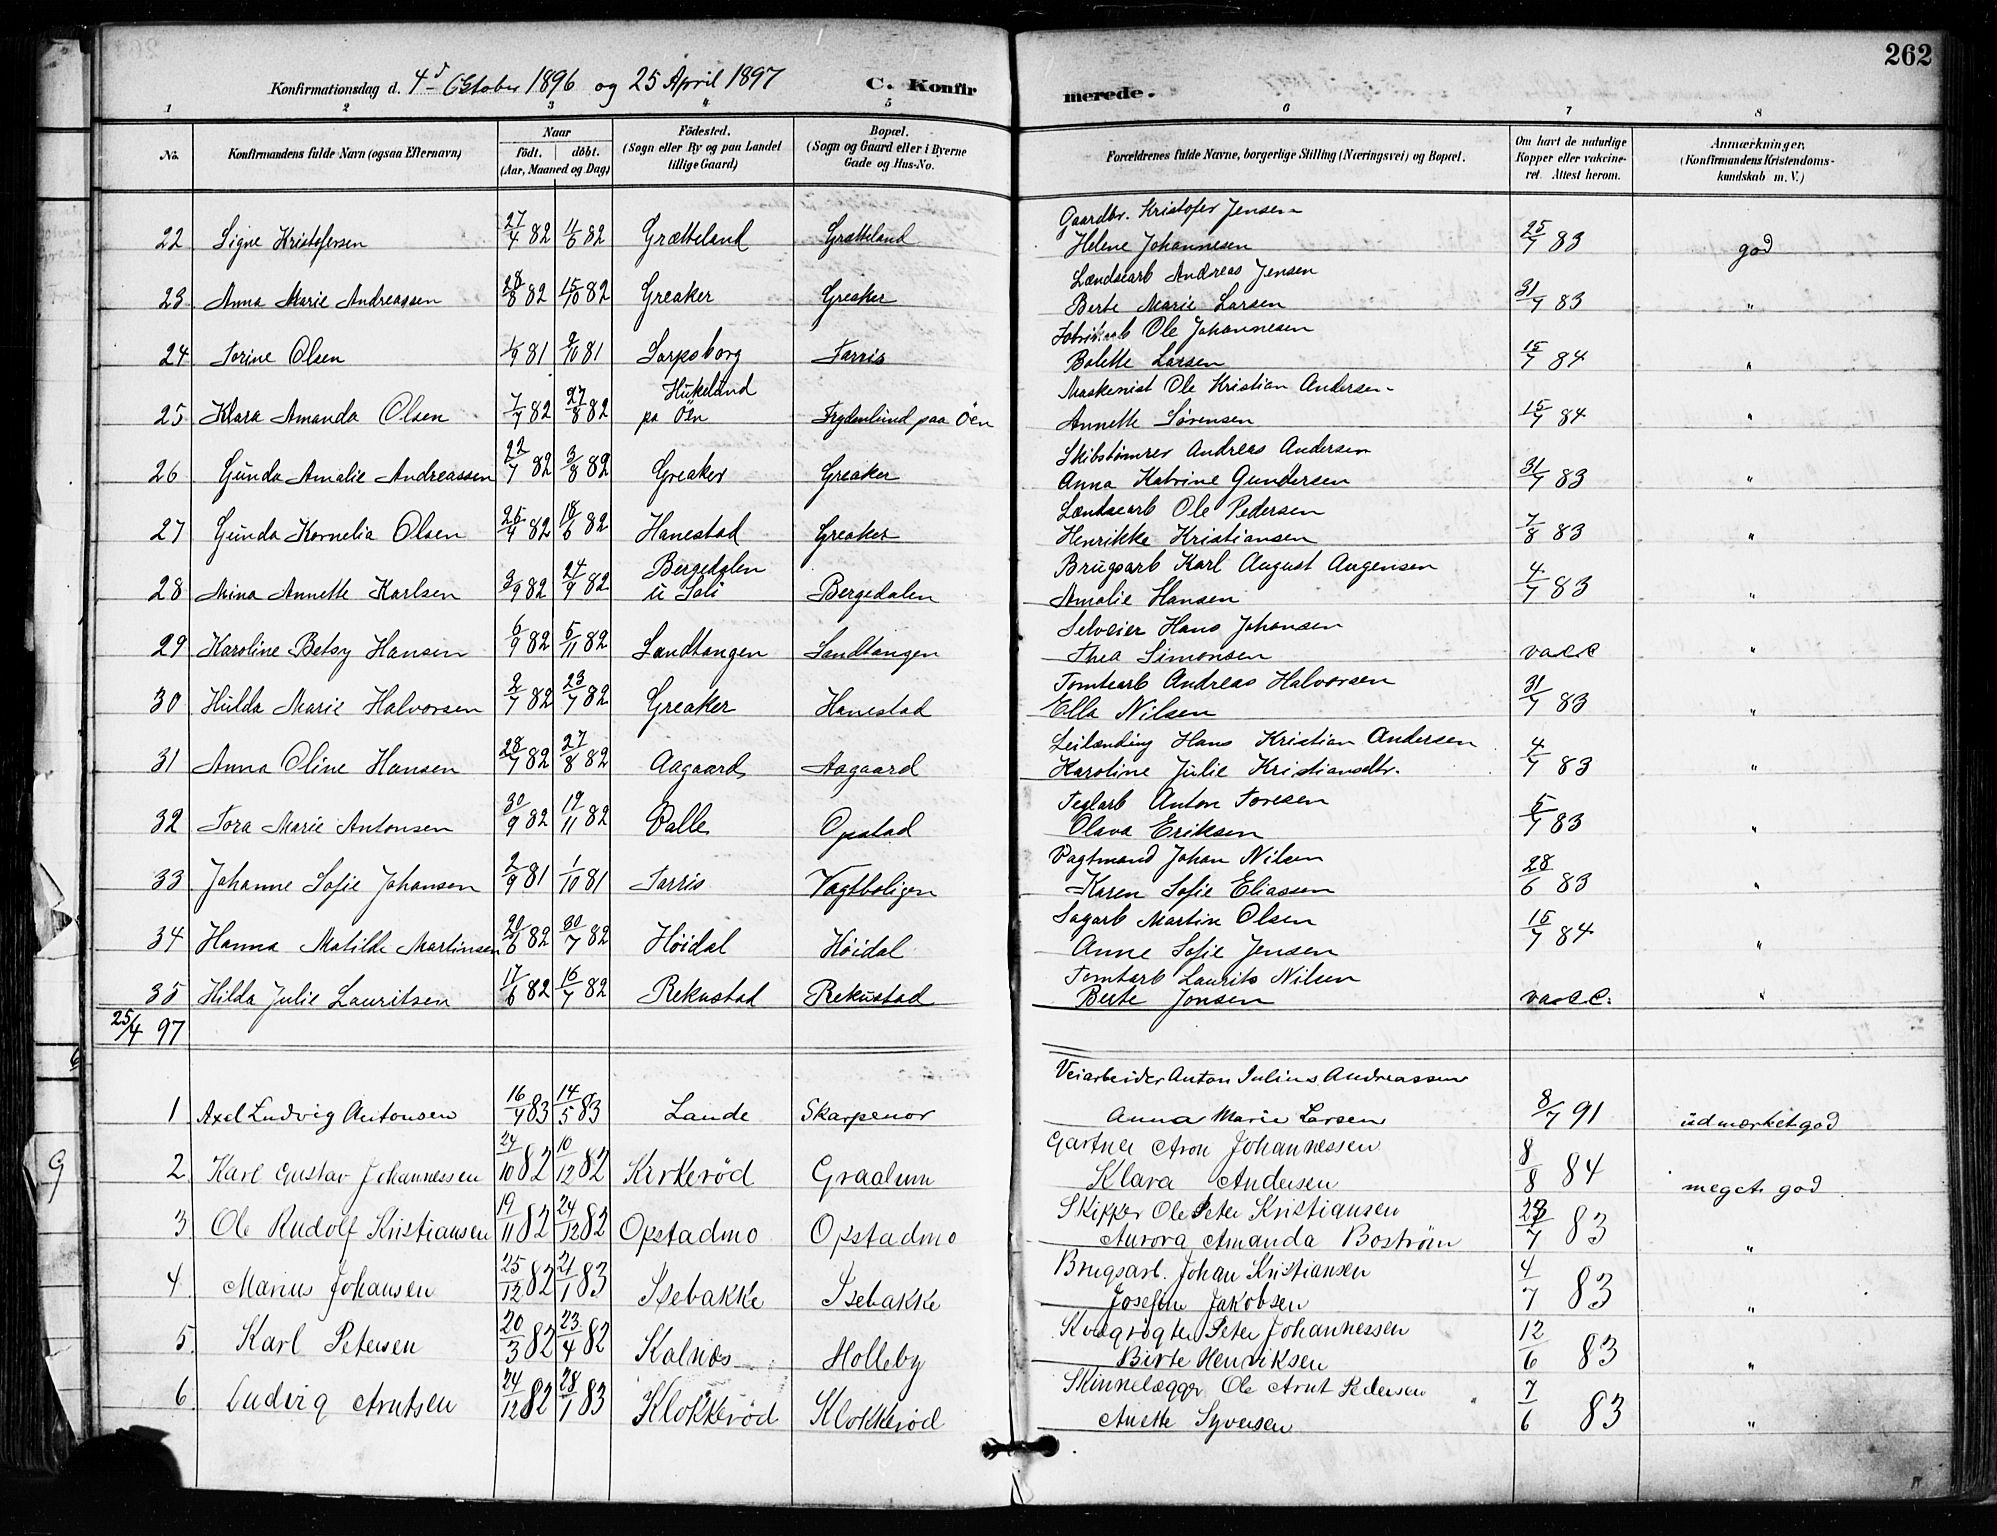 262
Konfirmationsdag d. 4d October 1896 og 25 April 1897 C. Konfirmerede.
1 2 3 4 5 6 7 8
No. Konfirmandens fulde Navn (ogsaa Efternavn) Naar födt. döbt. (Aar, Maaned og Dag) Födested. (Sogn eller By og paa Landet tillige Gaard) Bopæl. (Sogn og Gaard eller i Byerne Gade og Hus-No. Forældrenes fulde Navne, borgerlige Stilling (Næringsvei) og Bopæl. Om havt de naturlige Kopper eller vakcineret. Attest herom. Anmærkninger, (Konfirmandens Kristendomskundskab m. V.)
Gaardbr. Kristofer Jensen
22 Signe Kristofersen 27/4 82 11/6 82 Grætteland Grætteland Helene Johannesen 25/7 83 god
Lændsearb Andreas Jensen
23 Anna Marie Andreassen 28/8 82 15/10 82 Greaker Greaker Berte Marie Larsen 31/7 83 "
Fabrikarb Ole Johannesen
24 Torine Olsen 1/9 81 9/10 81 Sarpsborg Tarris Bolette Larsen 15/7 84 "
Hukeland Maskenist Ole Kristian Andersen
25 Klara Amanda Olsen 7/7 82 27/8 82 pa Öen Frydenlund paa Öen Annette Sørensen 15/7 84 "
Skibstømrer Andreas Andersen
26 Gunda Amalie Andreassen 22/7 82 3/8 82 Greaker Greaker Anna Katrine Gundersen 31/7 83 "
Lændsearb Ole Pedersen
27 Gunda Kornelia Olsen 25/4 82 18/6 82 Hanestad Greaker Henrikke Kristiansen 7/8 83 "
Bergedalen Brugsarb Karl August Augensen
28 Mina Annette Karlsen 3/9 82 24/9 82 u Soli Bergedalen Amalie Hansen 4/7 83 "
Selveier Hans Johansen
29 Karoline Betsy Hansen 6/9 82 5/11 82 Sandtangen Sandtangen Thea Simonsen vacc "
Tomtearb Andreas Halvorsen
30 Hulda Marie Halvorsen 2/7 82 23/7 82 Greaker Hanestad Ella Nilsen 31/7 83 "
Leilænding Hans Kristian Andersen
31 Anna Oline Hansen 28/7 82 27/8 82 Aagaard Aagaard Karoline Julie Kristiansdtr. 4/7 83 "
Teglarb Anton Toresen
32 Tora Marie Antonsen 30/9 82 19/11 82 Valle Opstad Olava Eriksen 5/7 83 "
Vagtmand Johan Nilsen
33 Johanne Sofie Johansen 2/9 81 1/10 81 Tarris Vagtboligen Karen Sofie Eliassen 28/6 83 "
Sagarb Martin Olsen
34 Hanna Matilde Martinsen 20/6 82 30/7 82 Höidal Höidal Anne Sofie Jensen 15/7 84 "
Tomtarb Laurits Nilsen
35 Hilda Julie Lauritsen 17/6 82 16/7 82 Rekustad Rekustad Berte Jonsen vacc. "
25/4 97
Veiarbeider Anton Julius Andreassen
1 Axel Ludvig Antonsen 16/4 83 14/5 83 Lande Skarpenor Anna Marie Larsen 8/7 91 udmærket god
Gartner Aron Johannessen
2 Karl Gustav Johannessen 24/10 82 10/12 82 Kirkerød Graalum Klara Andersen 8/8 84 meget god
Skipper Ole Peter Kristiansen
3 Ole Rudolf Kristiansen 19/11 82 24/12 82 Opstadmo Opstadmo Aurora Amanda Boström /7 83 "
Brugsarb. Johan Kristiansen
4 Marius Johansen 25/12 82 21/1 83 Isebakke Isebakke Josefine Jakobsen 4/7 83 "
Kvægrögter Peter Johannessen
5 Karl Petersen 20/3 82 23/4 82 Kalnæs Holleby Birte Henriksen 12/6 83 "
Skinnelægger Ole Arnt Pedersen
6 Ludvig Arntsen 24/12 82 28/1 83 Klokkeröd Klokkeröd Anette Syversen 7/6 83 "